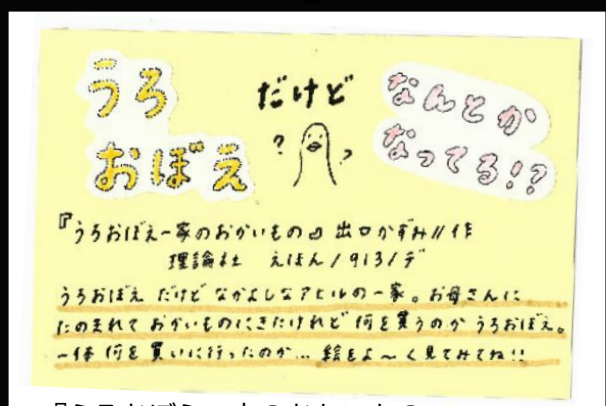 うろ
おぼえ
だけど
なんとか
なってる!?
? ?
『うろおぼえ一家のおかいもの』 出口かずみ//作
理論社 えほん/913/デ
うろおぼえ だけど なかよしなアヒルの一家。お母さんに
たのまれて おかいものにきたけれど 何を買うのか うろおぼえ。
一体 何を 買いに行ったのか… 絵をよ〜く見てみてね!!